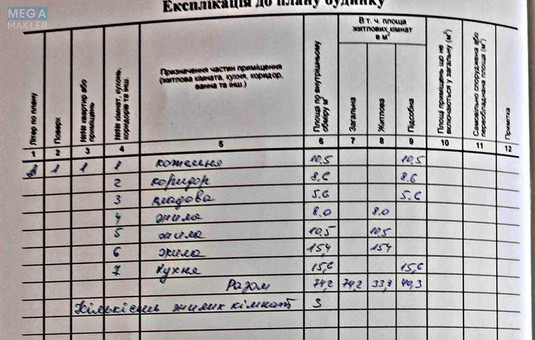 MEGA
МАКЛЕР
Експлікація до плану будинку
Літер по плану
Поверх
№№ квартир або приміщень
№№ кімнат, кухонь, коридорів та інш.
Призначення частин приміщення (житлова кімната, кухня, коридор, ванна та інш.)
Площа по внутрішньому обміру м²
В т. ч. площа житлових кімнат в м²
Загальна
Житлова
Підсобна
Площа приміщень що не включаються у загальну (м²)
Самовільно споруджена або переобладнана площа (м²)
Примітка
1 2 3 4 5 6 7 8 9 10 11 12
1 1 1 котельня 10,5 10,5
2 коридор 8.6 8.6
3 кладова 5.6 5.6
4 жила 8.0 8.0
5 жила 10,5 10,5
6 жила 15,4 15,4
7 кухня 15,6 15,6
Разом 74,2 74,2 33,9 40,3
Кількість жилих кімнат 3